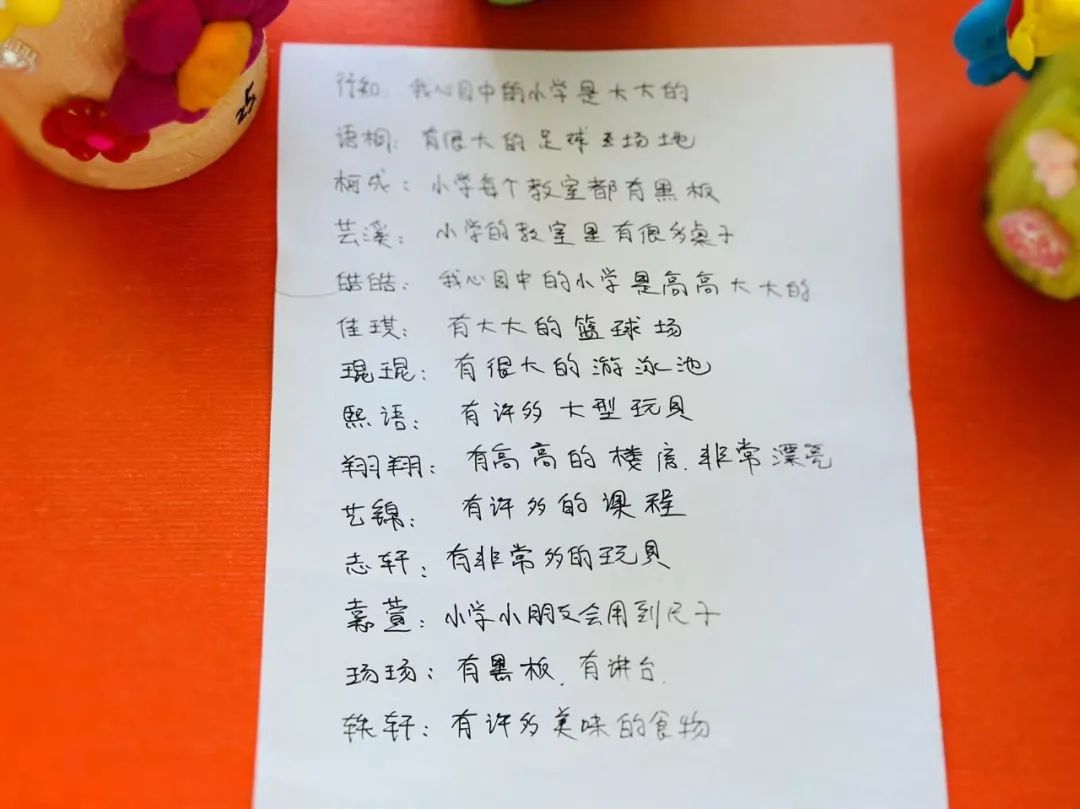 25
行知：我心目中的小学是大大的
语桐：有很大的足球场地
柯成：小学每个教室都有黑板
芸溪：小学的教室里有很多桌子
皓皓：我心目中的小学是高高大大的
佳琪：有大大的篮球场
琨琨：有很大的游泳池
熙语：有许多大型玩具
翔翔：有高高的楼房.非常漂亮
艺锦：有许多的课程
志轩：有非常多的玩具
嘉萱：小学小朋友会用到尺子
玚玚：有黑板.有讲台.
轩：有许多美味的食物